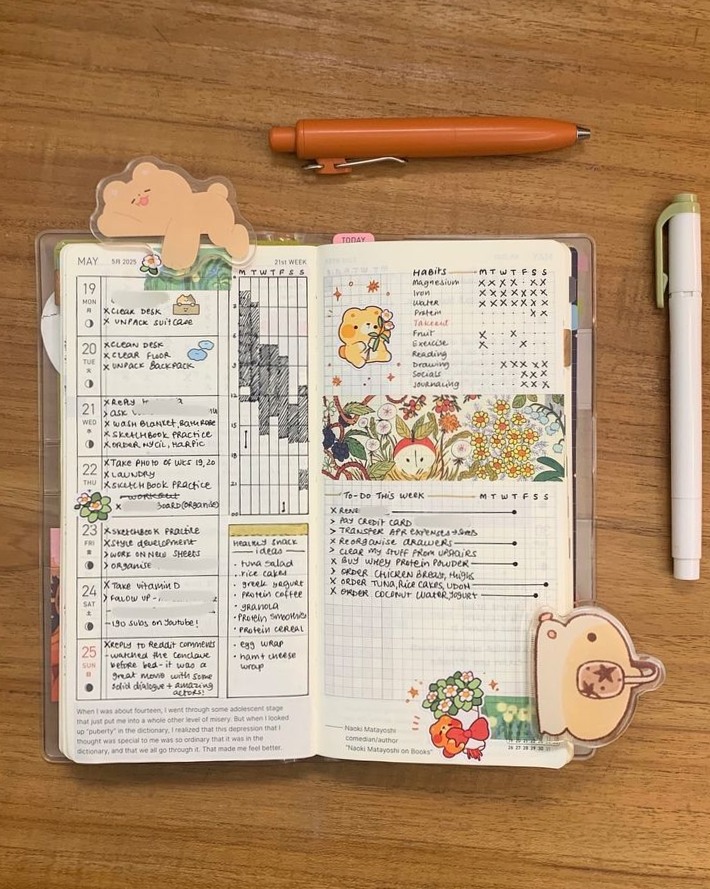 TODAY
MAY 5月 2025 21st WEEK
M T W T F S S
19
MON
x CLEAR DESK
x UNPACK SUITCASE
20
TUE
x CLEAN DESK
x CLEAR FLOOR
x UNPACK BACKPACK
21
WED
x REPLY
> ASK
x WASH BLANKET, BATHROBE
x SKETCHBOOK PRACTICE
x ORDER NYCIL, HARPIC
22
THU
x TAKE PHOTO OF WCS 19, 20
x LAUNDRY
x SKETCHBOOK PRACTICE
x BOARD (ORGANISE)
23
FRI
x SKETCHBOOK PRACTICE
x STYLE DEVELOPMENT
> WORK ON NEW SHEETS
> ORGANISE
24
SAT
x TAKE VITAMIN D
> FOLLOW UP -
- 190 SUBS ON YOUTUBE!
25
SUN
x REPLY TO REDDIT COMMENTS
- WATCHED THE CONCLAVE
BEFORE BED - IT WAS A
GREAT MOVIE WITH SOME
SOLID DIALOGUE + AMAZING
ACTORS!
3
6
9
12
15
18
21
00
HEALTHY SNACK
IDEAS
• TUNA SALAD
• RICE CAKES
• GREEK YOGURT
• PROTEIN COFFEE
• GRANOLA
• PROTEIN SMOOTHIES
• PROTEIN CEREAL
• EGG WRAP
• HAM + CHEESE
WRAP
When I was about fourteen, I went through some adolescent stage
that just put me into a whole other level of misery. But when I looked
up "puberty" in the dictionary, I realized that this depression that I
thought was special to me was so ordinary that it was in the
dictionary, and that we all go through it. That made me feel better.
HABITS M T W T F S S
MAGNESIUM
IRON
WATER
PROTEIN
TAKEOUT
FRUIT
EXERCISE
READING
DRAWING
SOCIALS
JOURNALING
TO-DO THIS WEEK M T W T F S S
x RENE
> PAY CREDIT CARD
> TRANSFER APR EXPENSES
x REORGANISE DRAWERS
> CLEAR MY STUFF FROM UPSTAIRS
x BUY WHEY PROTEIN POWDER
> ORDER CHICKEN BREAST, THIGHS
x ORDER TUNA, RICE CAKES, UDON
x ORDER COCONUT WATER, YOGURT
Naoki Matayoshi
comedian/author
"Naoki Matayoshi on Books"
26 27 28 29 30 31